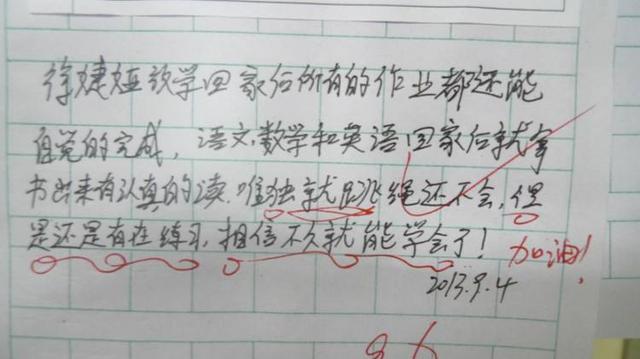 徐婕娅放学回家后所有的作业都还能
自觉的完成，语文、数学和英语回家后就拿
书出来有认真的读，唯独就跳绳还不会，但
是还是有在练习，相信不久就能学会了！
加油！
2013.9.4